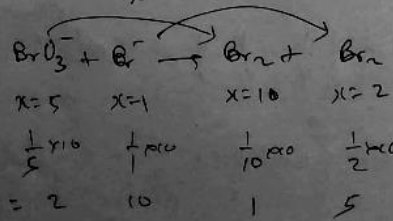 BrO₃⁻ + Br⁻ → Br₂ + Br₂
x=5 x=1 x=10 x=2
1/5 x10 1/1 x10 1/10 x10 1/2 x10
= 2 10 1 5